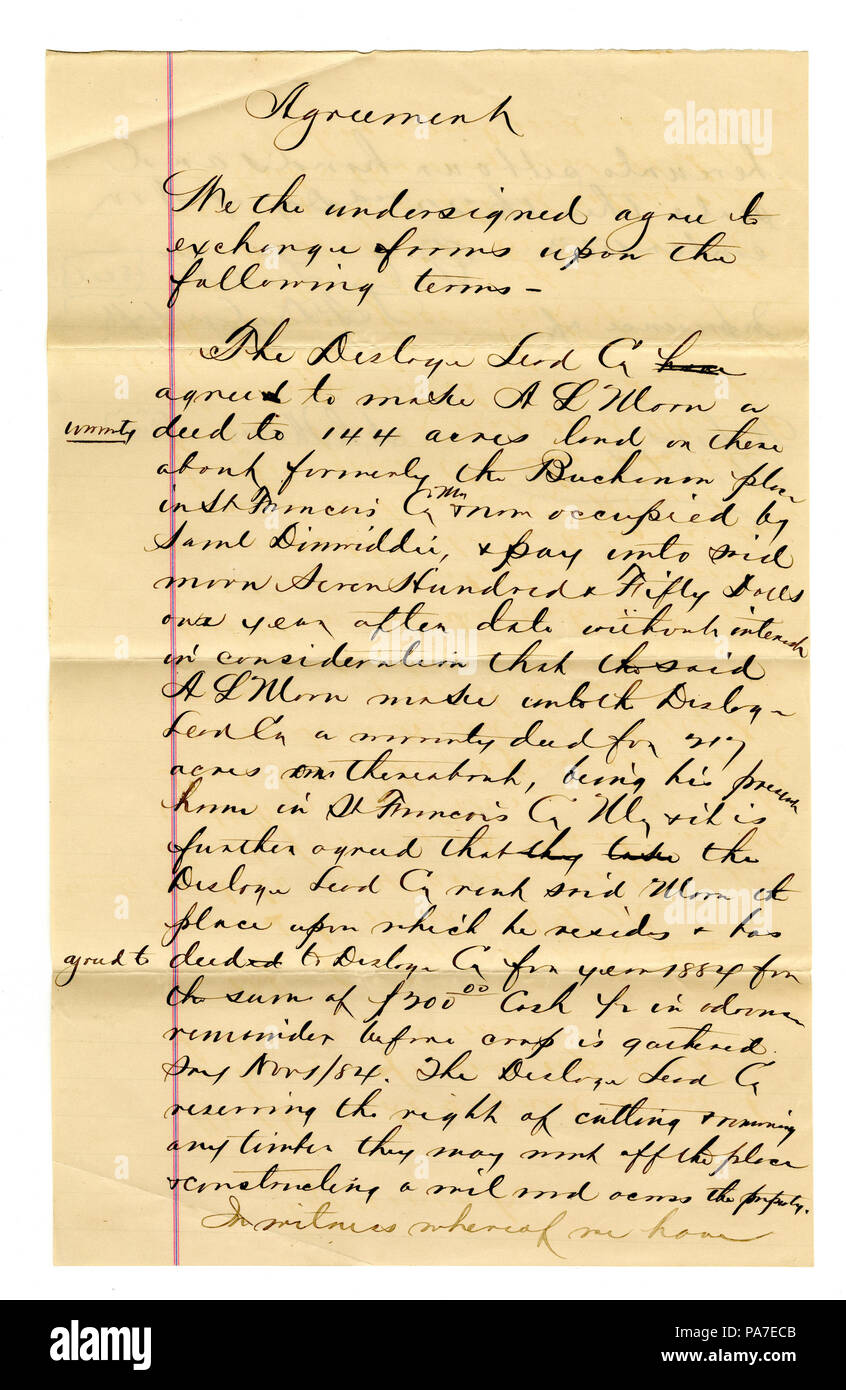 Agreement
We the undersigned agree to
exchange farms upon the
following terms –
The Desloge Lead Co have
agreed to make A L Morn a
warranty deed to 144 acres land or there
about formerly the Buchanan place
in St Francois Co Mo & now occupied by
Saml Dinwiddie, & pay unto said
Morn Seven Hundred & Fifty Dolls
one year after date without interest
in consideration that the said
A L Morn make unto the Desloge
Lead Co a warranty deed for 217
acres or thereabout, being his present
home in St Francois Co Mo & it is
further agreed that they take the
Desloge Lead Co rent said Morn the
place upon which he resides & has
agreed to deeded to Desloge Co for year 1884 for
the sum of $200.00 Cash in advance
remainder before crop is gathered
say Nov 1/84. The Desloge Lead Co
reserving the right of cutting & removing
any timber they may want off the place
& constructing a rail road across the property.
In witness whereof we have
alamy
Image ID: PA7ECB
www.alamy.com